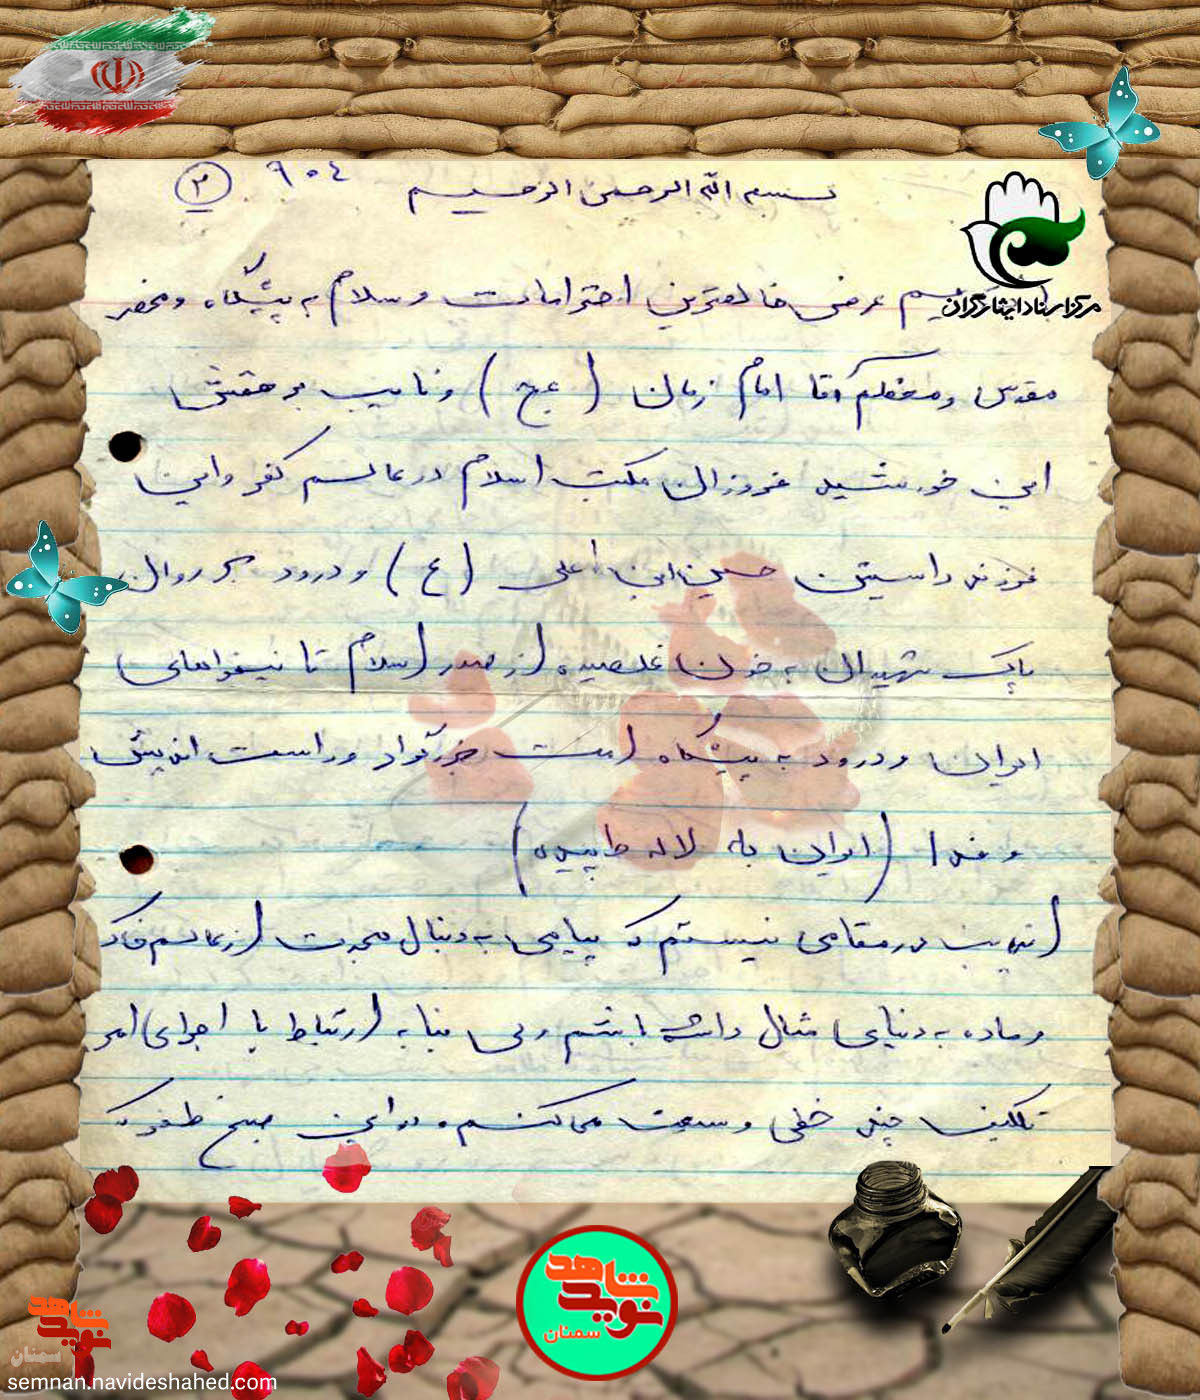 ۹۰۴
۲
بسم الله الرحمن الرحیم
مرکز اسناد ایثارگران
عرض خالصترین احترامات و سلام به پیشگاه و محضر
مقدس و معظم آقا امام زمان (عج) و نایب بر حقش
این خورشید فروزان مکتب اسلام در عالم کفر و این
فرزند راستین حسین ابن علی (ع) و درود بر روان
پاک شهیدان به خون غلطیده از صدر اسلام تا نینواهای
ایران و درود به پیشگاه امت بزرگوار و راست اندیش
و خدا (ایران به لاله طاپیده)
اینجانب در مقامی نیستم که پیامی به دنبال هجرت از عالم خاک
و ماده به دنیای مثال داشته باشم ولی بنا به ارتباط با اجرای امر
تکلیف چند خطی وصیت می‌کنم و در این
شاهد
نوید
سمنان
شاهد
نوید
سمنان
semnan.navideshahed.com